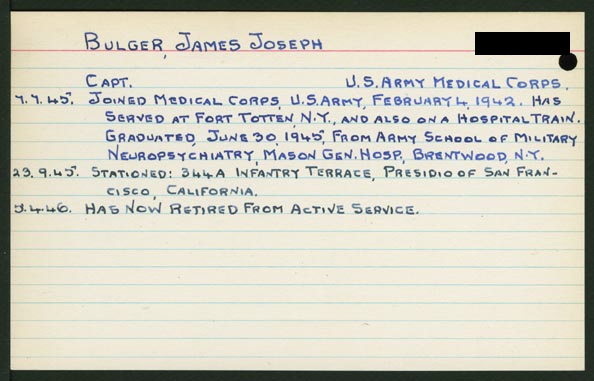 BULGER, JAMES JOSEPH
CAPT. U.S. ARMY MEDICAL CORPS.
7.7.45. JOINED MEDICAL CORPS, U.S. ARMY, FEBRUARY 4, 1942. HAS
SERVED AT FORT TOTTEN, N.Y., AND ALSO ON A HOSPITAL TRAIN.
GRADUATED, JUNE 30, 1945, FROM ARMY SCHOOL OF MILITARY
NEUROPSYCHIATRY, MASON GEN. HOSP., BRENTWOOD, N.Y.
23.9.45. STATIONED: 344A INFANTRY TERRACE, PRESIDIO OF SAN FRAN-
CISCO, CALIFORNIA.
.4.46. HAS NOW RETIRED FROM ACTIVE SERVICE.